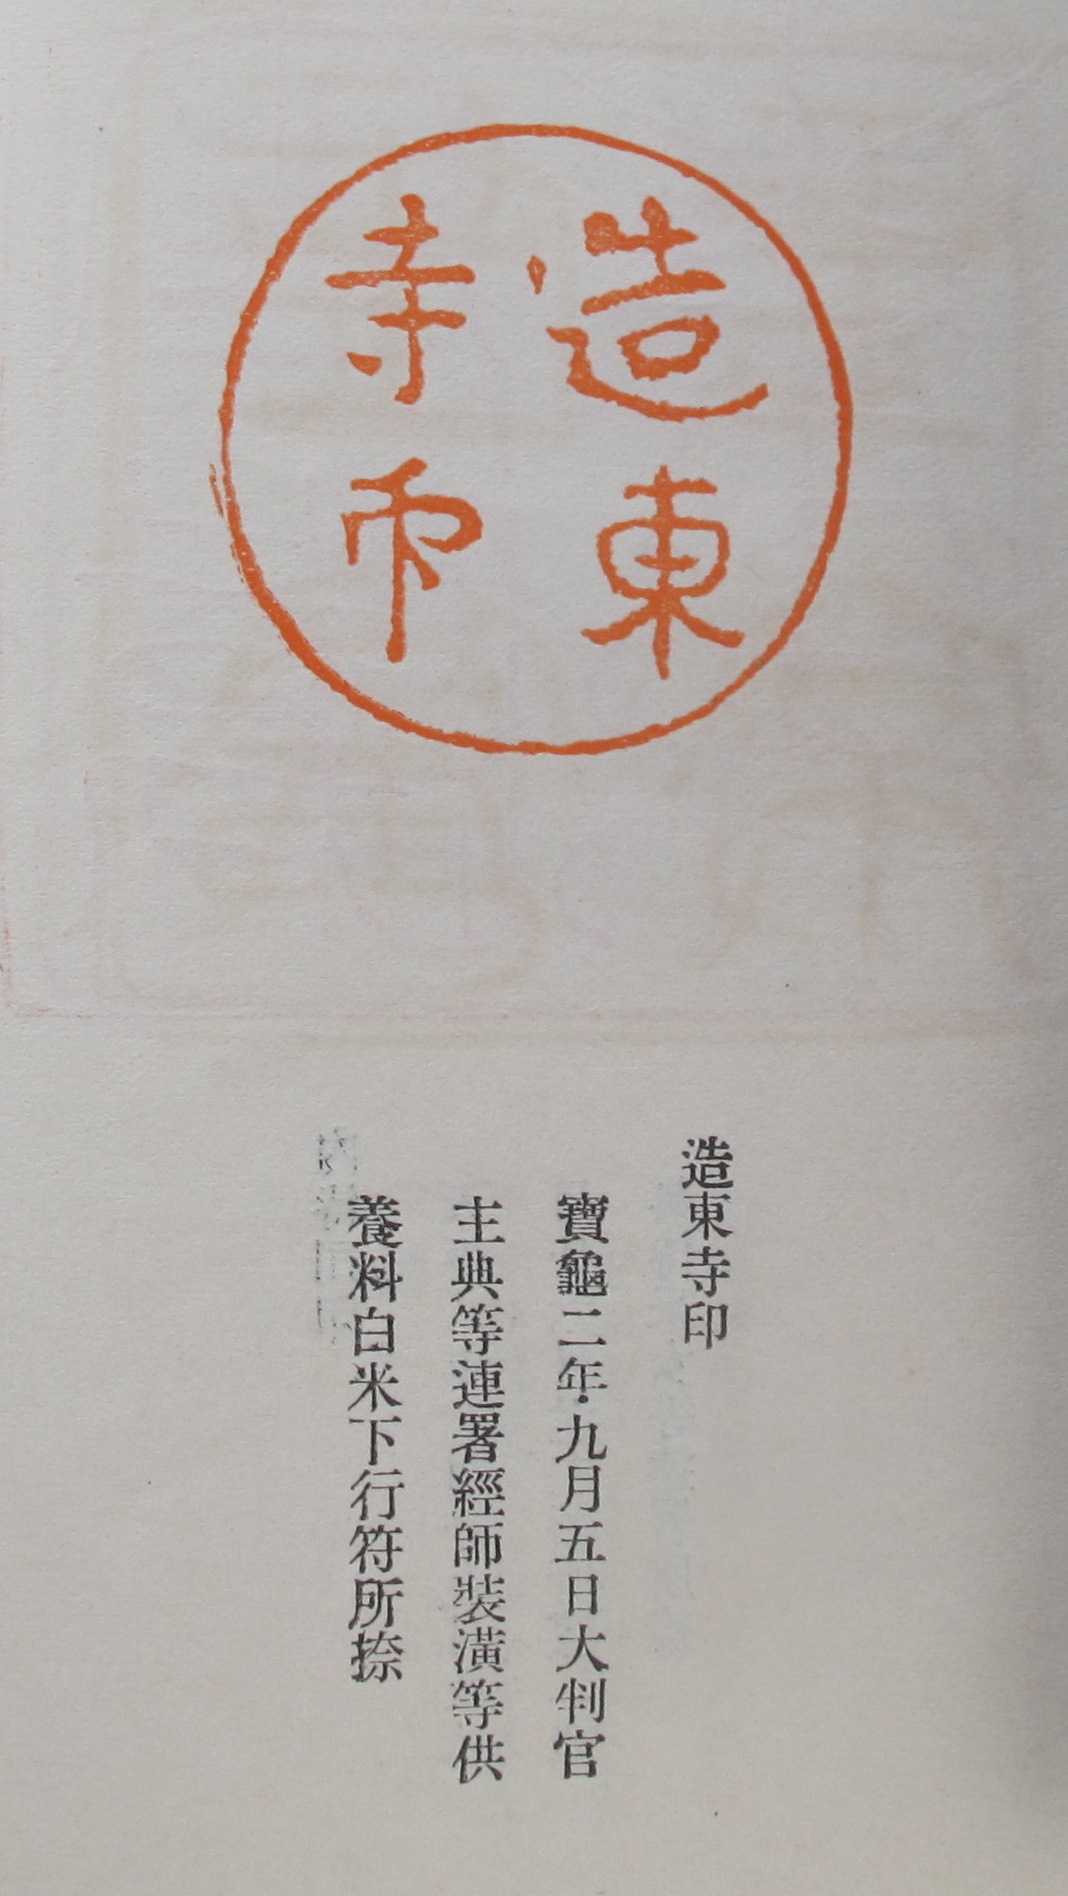 造東
寺印
造東寺印
寶龜二年九月五日大判官
主典等連署經師裝潢等供
養料白米下行符所捺